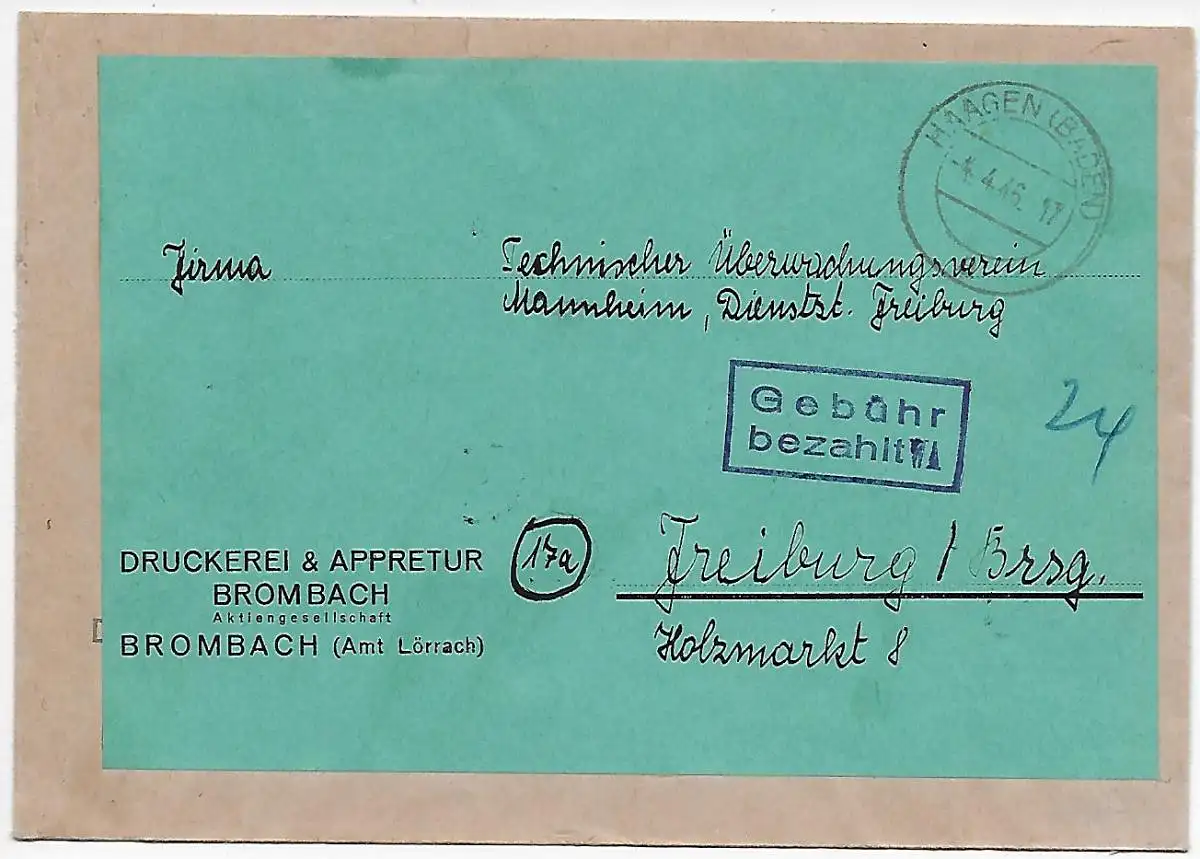 HAAGEN (BADEN)
4.4.46. 17
Firma
Technischer Überwachungsverein
Mannheim, Dienstst. Freiburg
Gebühr
bezahlt
24
DRUCKEREI & APPRETUR
BROMBACH
Aktiengesellschaft
BROMBACH (Amt Lörrach)
17a
Freiburg / Brsg.
Holzmarkt 8